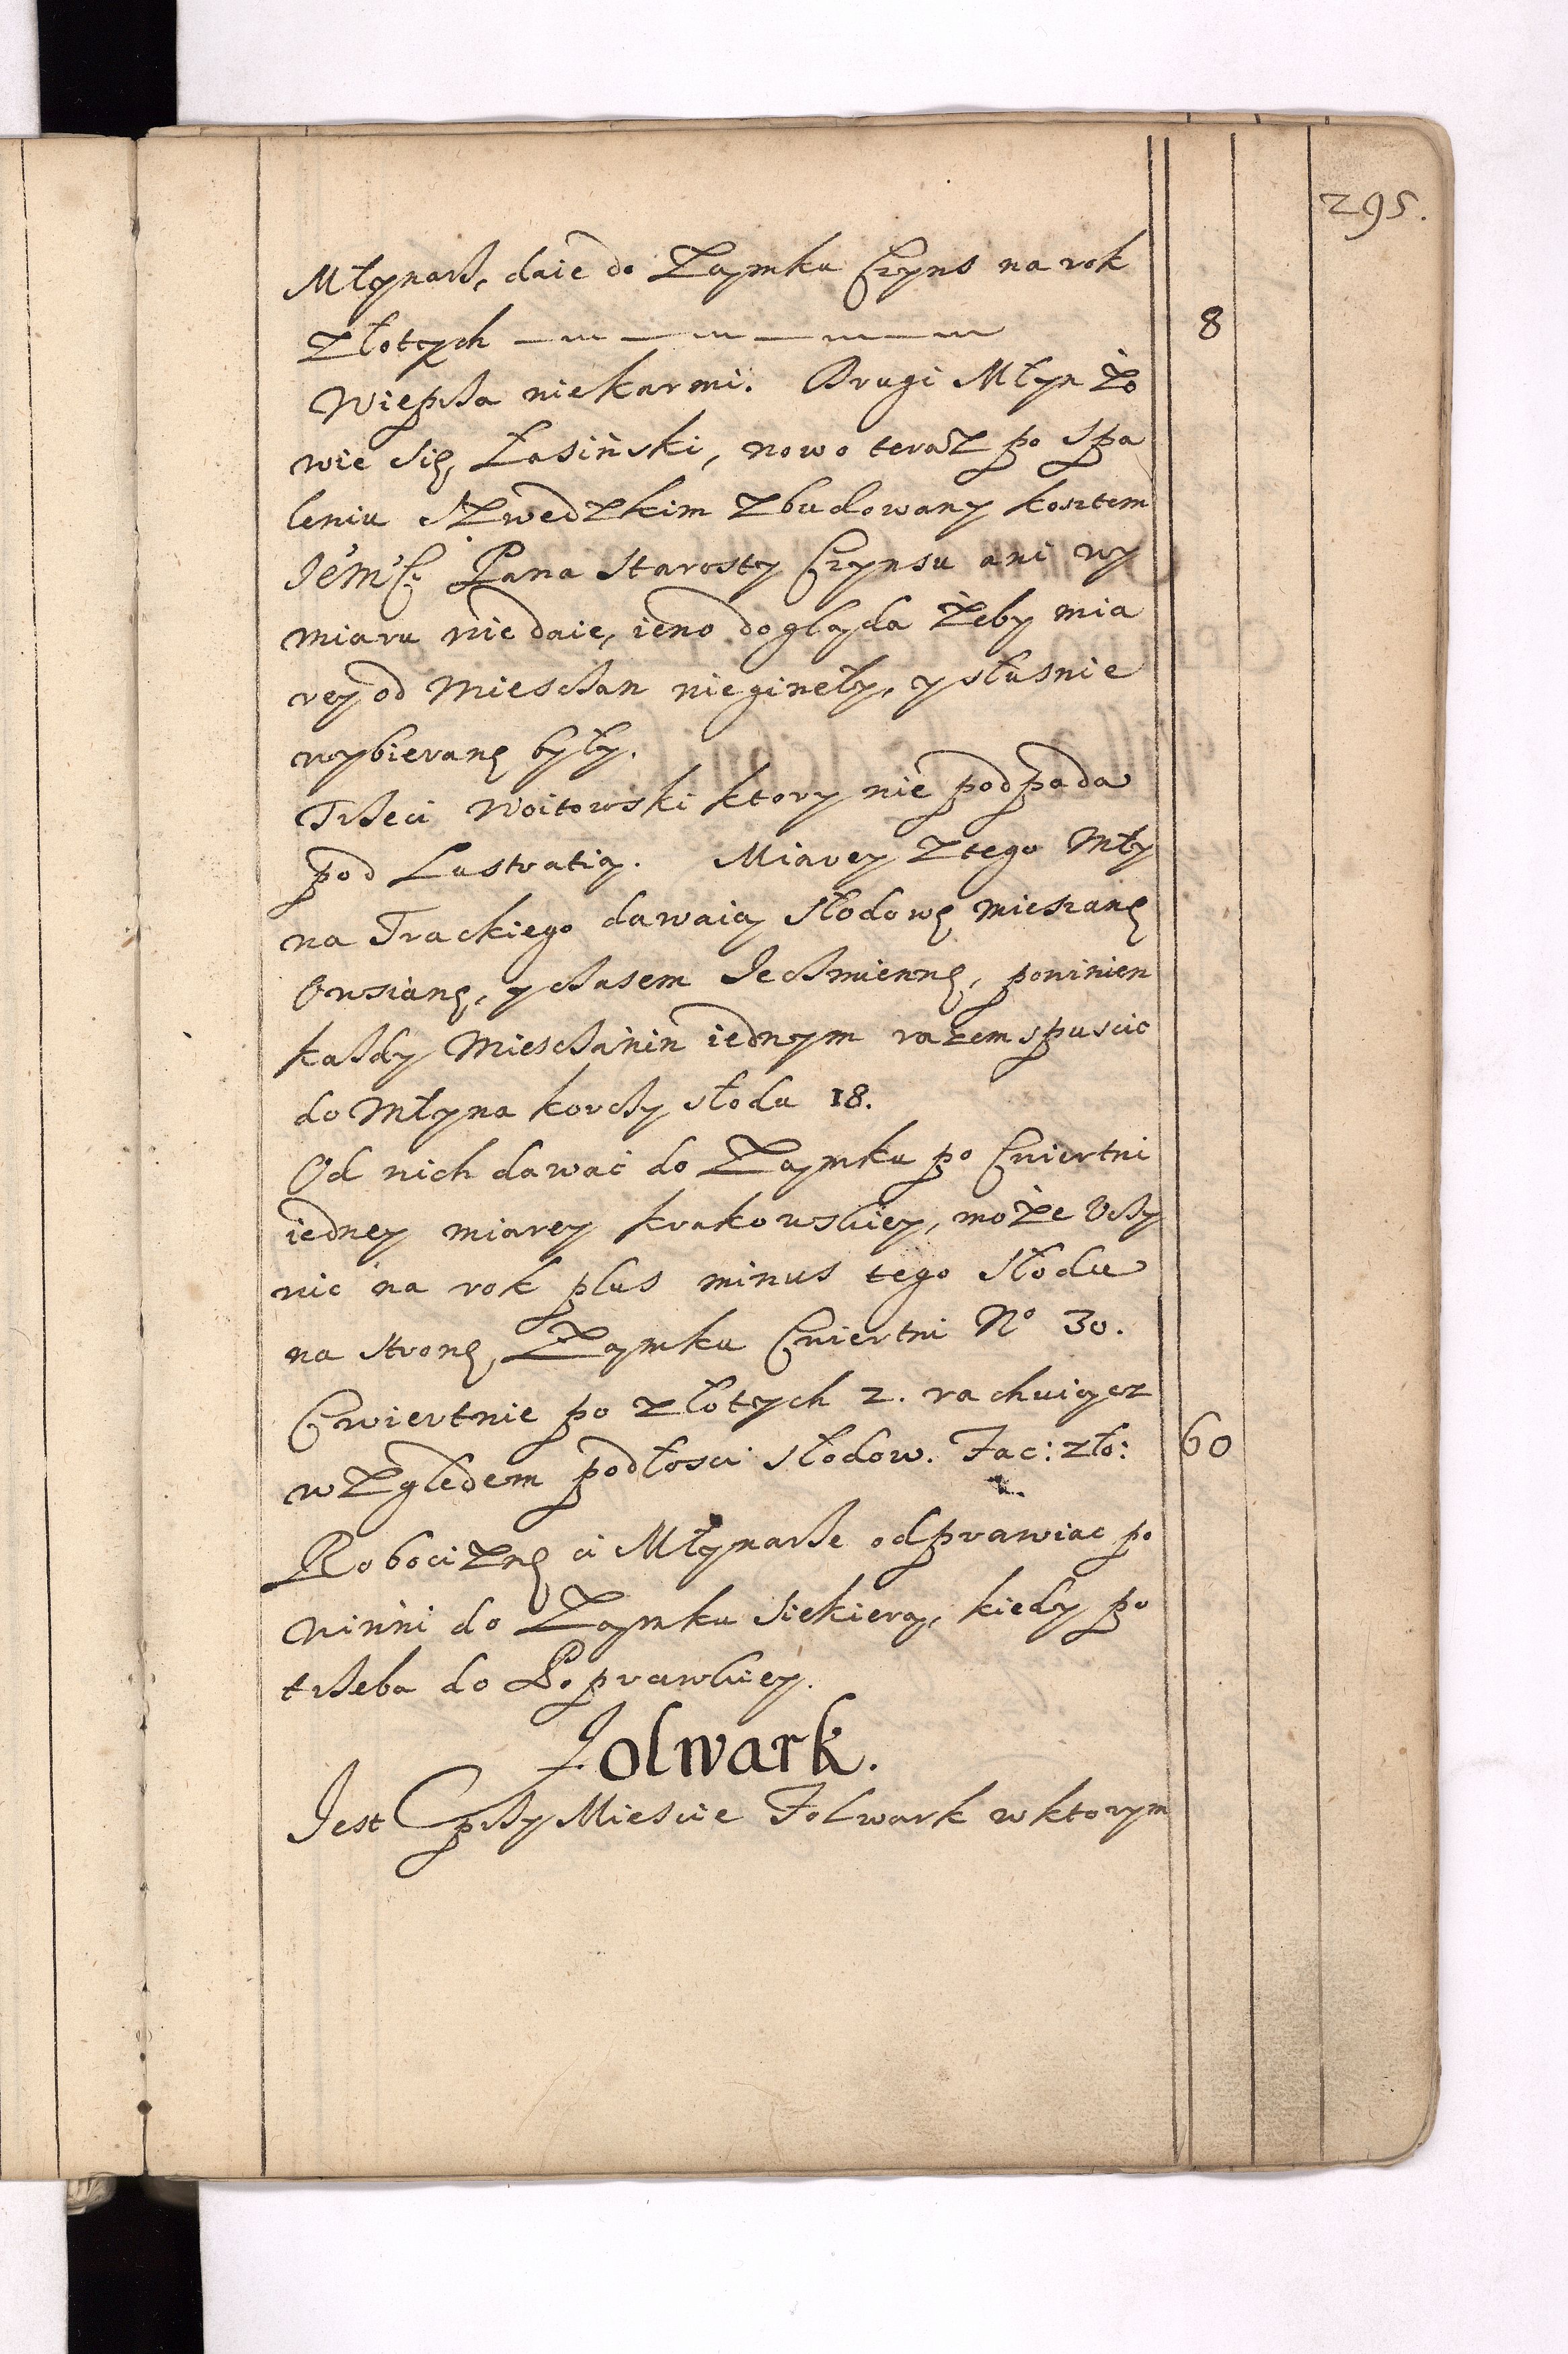 295.
Młynarz, daie do Zamku Czyns na rok
Złotych 8
Wieprza niekarmi. Drugi Młyn Zo
wie się, Łasiński, nowo teraz po spa
leniu Szwedzkim zbudowany kosztem
Jem̃ci Pana Starosty Czynsu ani wy
miaru nie daie, ieno dogląda żeby mia
rey od Miesczan nieginęły, y słusnie
wybieranę były.
Trzeci Woitowski ktory nie podpada
pod Lustratią. Miarey z tego Mły
na Trackiego dawaią słodowę mieszanę
Owsianę, y czasem Jeczmiennę, powinien
kazdy Miesczanin iednym razem spuscic
do Młyna korczy słodu 18.
Od nich dawać do Zamku po Cwiertni
iedney miarey krakowskiey, może Uczy
nić na rok plus minus tego słodu
na stronę, Zamku Cwiertni No 30.
Cwiertnie po złotych 2. rachuiącz
względem podłosci słodow. Fac: zło: 60
Robociznę ci Młynarze odprawiac po
winni do Zamku siekierą, kiedy po
trzeba do Poprawkiey.
Folwark.
Jest przy Miescie Folwark w ktorym